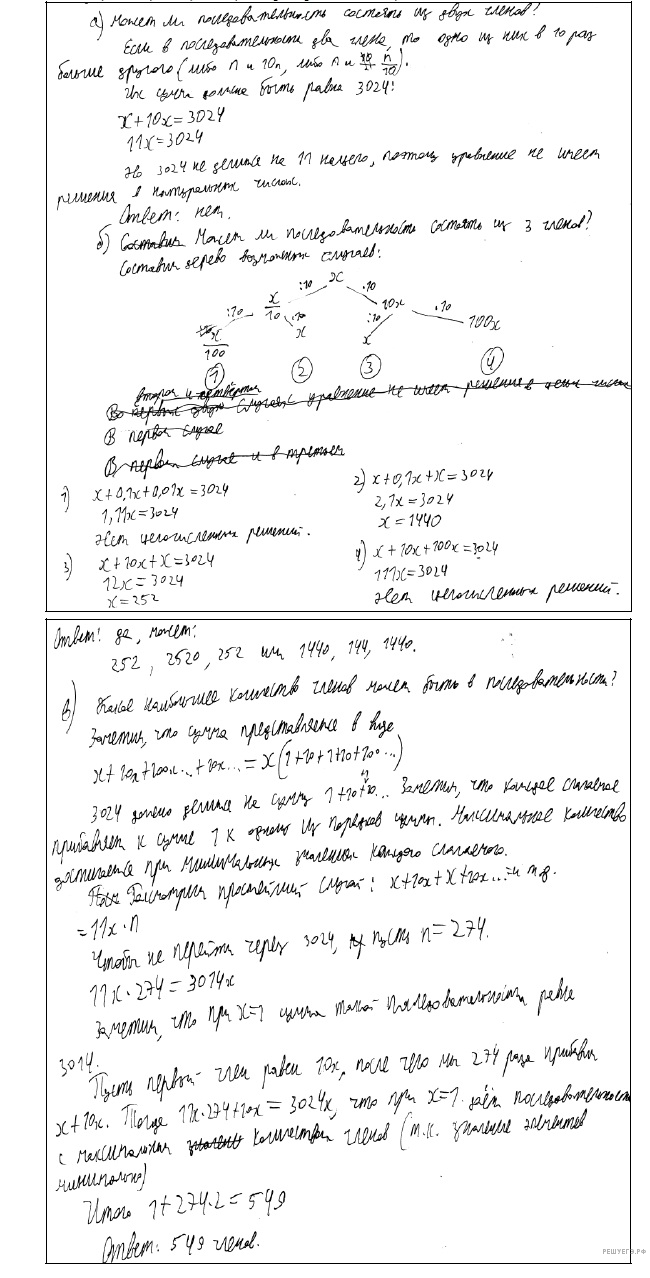 а) Может ли последовательность состоять из двух членов?
Если в последовательности два члена, то одно из них в 10 раз
больше другого (либо n и 10n, либо n и n/10).
Их сумма должна быть равна 3024!
x+10x=3024
11x=3024
Но 3024 не делится на 11 нацело, поэтому уравнение не имеет
решения в натуральных числах.
Ответ: нет.
б) Составим Может ли последовательность состоять из 3 членов?
Составим дерево возможных случаев:
x
:10 .10
x/10 10x
:10 .10 :10 .10
x/100 x x 100x
1 2 3 4
второй и четвёртый
В первых двух случаях уравнение не имеет решение в целых числах
В первом случае
В первом случае и в третьем
1) x+0,1x+0,01x=3024
1,11x=3024
Нет целочисленных решений.
2) x+0,1x+x=3024
2,1x=3024
x=1440
3) x+10x+x=3024
12x=3024
x=252
4) x+10x+100x=3024
111x=3024
Нет целочисленных решений.
Ответ: да, может:
252, 2520, 252 или 1440, 144, 1440.
в) Какое наибольшее количество членов может быть в последовательности?
Заметим, что сумма представляется в виде
x+10x+100x...+10x...=x(1+10+1+10+100...)
3024 должно делиться на сумму 1+10+10... Заметим, что каждое слагаемое
прибавляет к сумме 1 к одному из порядков суммы. Максимальное количество
достигается при минимальных значениях каждого слагаемого.
Рассмотрим простейший случай: x+10x+x+10x...=и т.д.
=11x·n
Чтобы не перейти через 3024, пусть n=274.
11x·274=3014x
Заметим, что при x=1 сумма такой последовательности равна
3014.
Пусть первый член равен 10x, после чего мы 274 раза прибавим
x+10x. Тогда 11x·274+10x=3024x, что при x=1 даёт последовательность
с максимальным количеством членов (т.к. значение элементов
минимально)
Итого 1+274·2=549
Ответ: 549 членов.
РЕШУЕГЭ.РФ